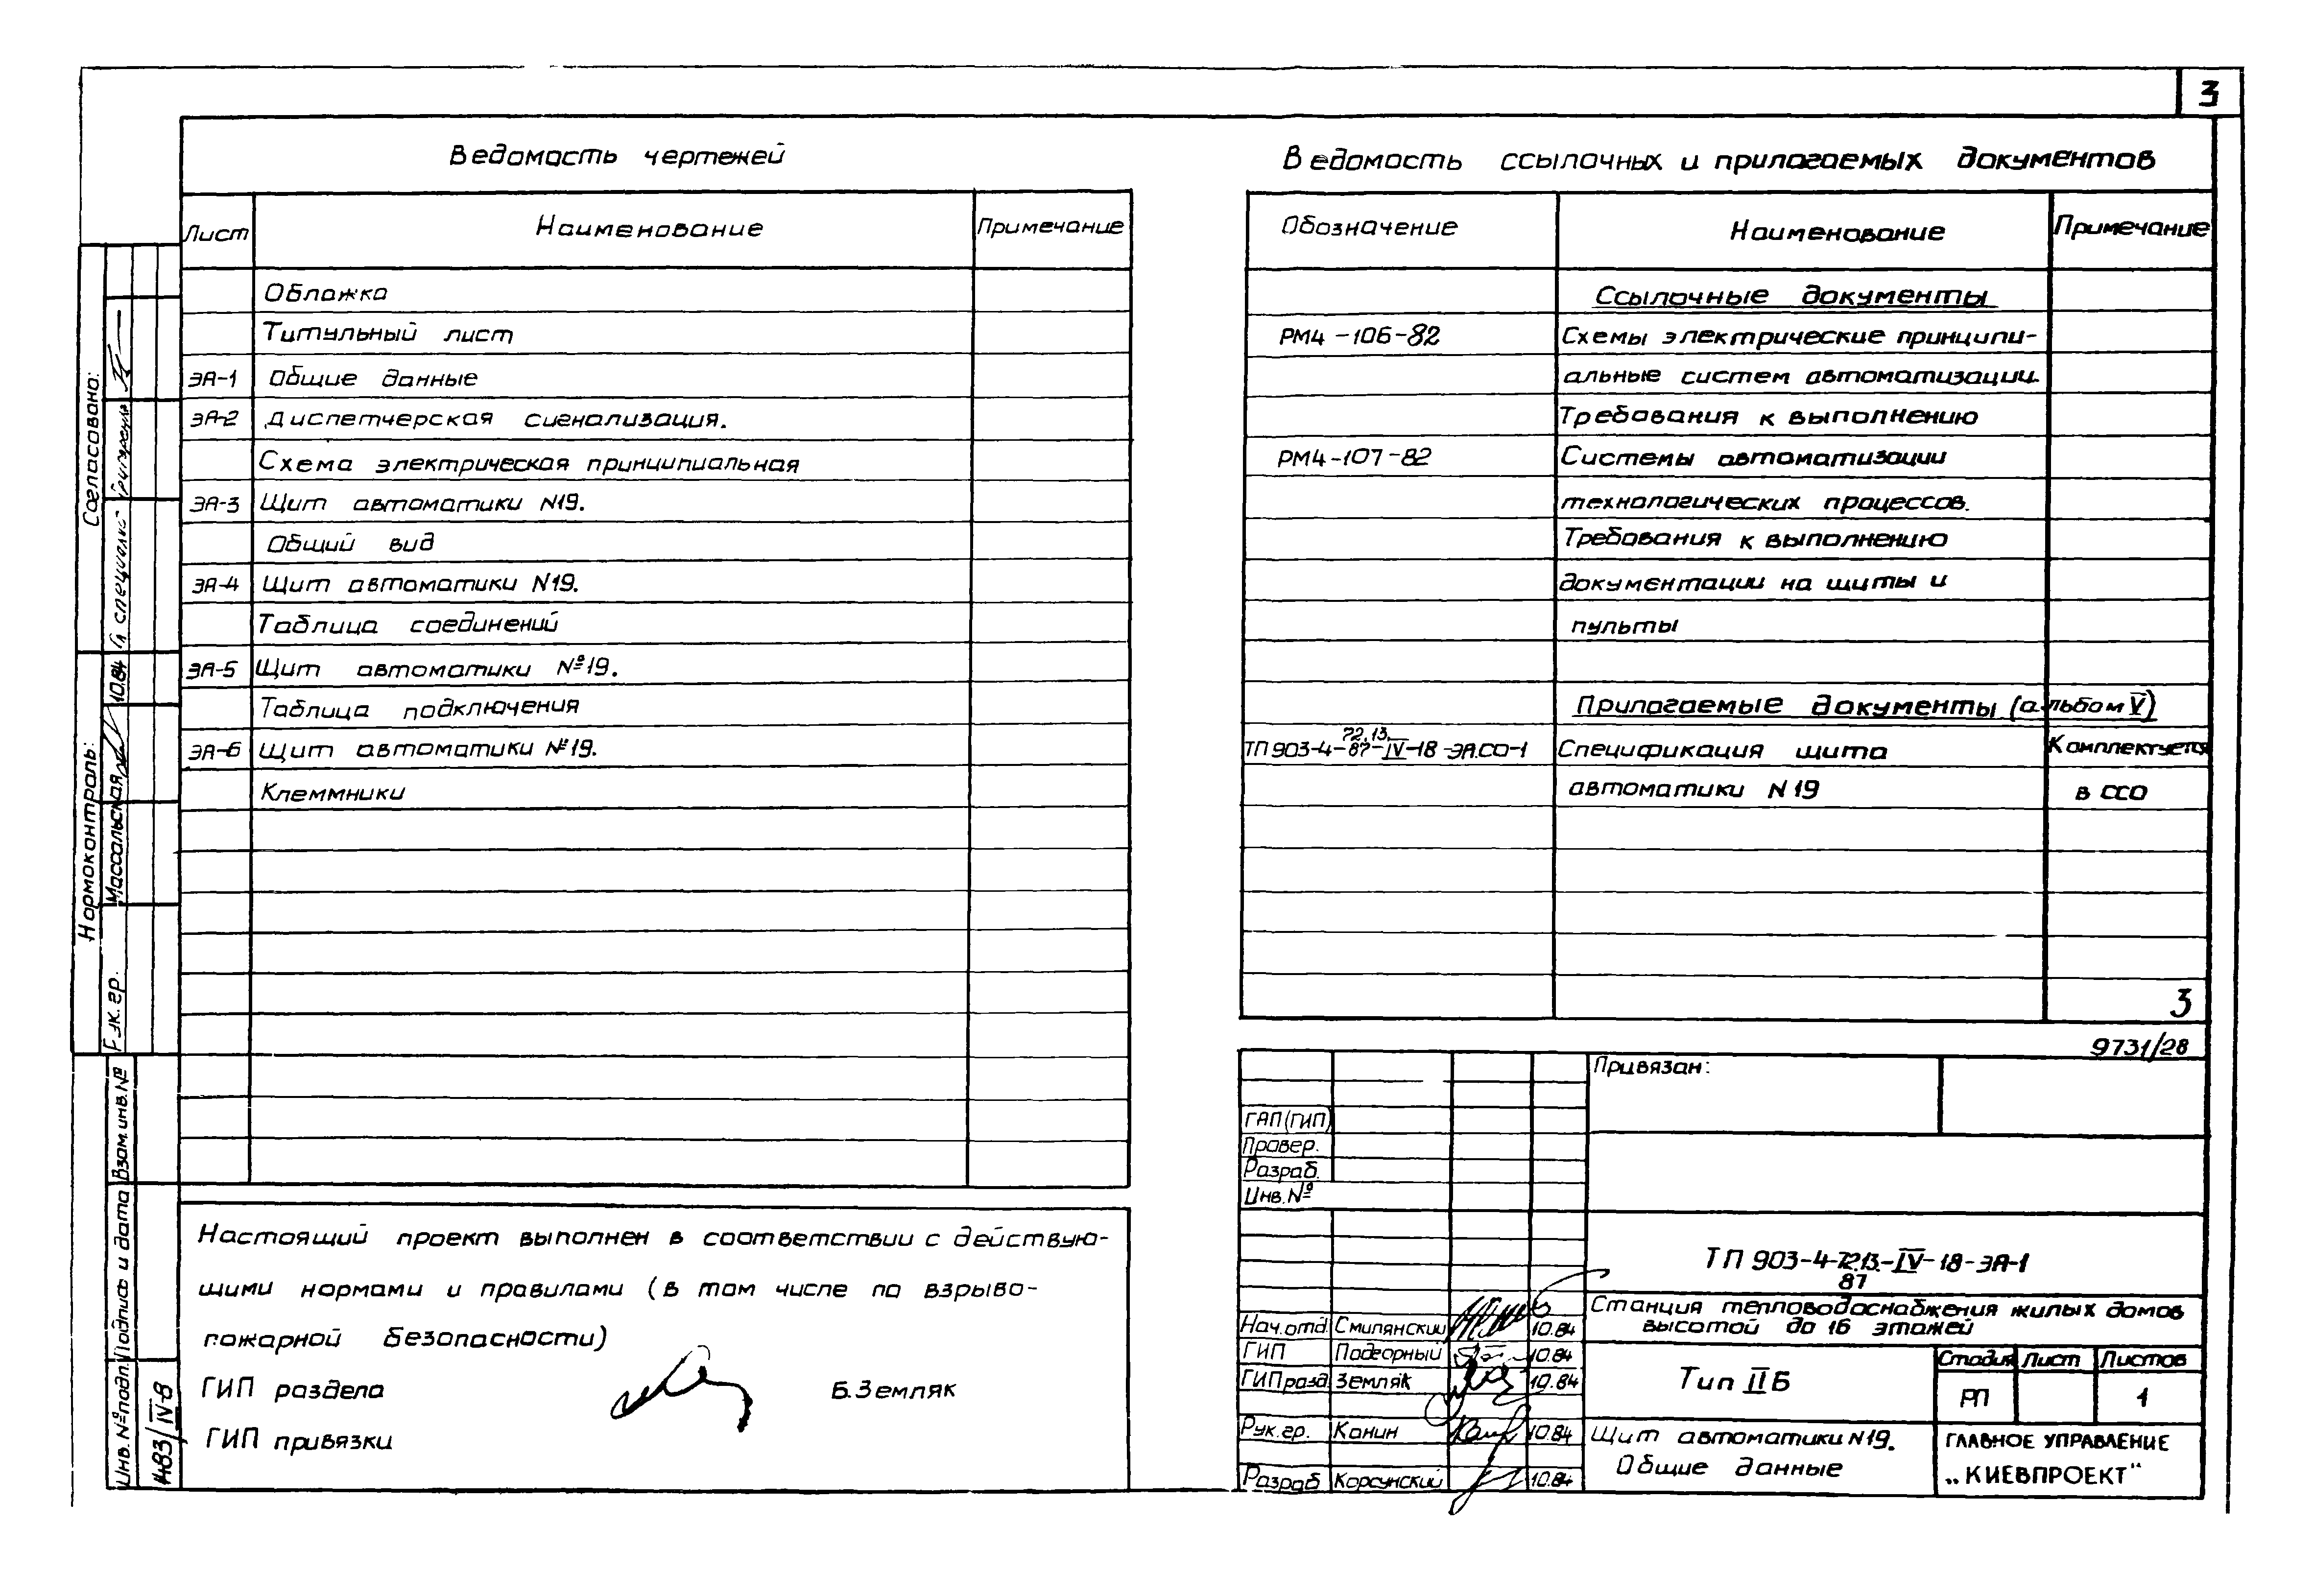 3
Ведомость чертежей
Лист Наименование Примечание
Обложка
Титульный лист
ЭА-1 Общие данные
ЭА-2 Диспетчерская сигнализация.
Схема электрическая принципиальная
ЭА-3 Щит автоматики N19.
Общий вид
ЭА-4 Щит автоматики N19.
Таблица соединений
ЭА-5 Щит автоматики №19.
Таблица подключения
ЭА-6 Щит автоматики №19.
Клеммники
Настоящий проект выполнен в соответствии с действую-
щими нормами и правилами (в том числе по взрыво-
пожарной безопасности)
ГИП раздела Б.Земляк
ГИП привязки
Ведомость ссылочных и прилагаемых документов
Обозначение Наименование Примечание
Ссылочные документы
РМ4-106-82 Схемы электрические принципи-
альные систем автоматизации.
Требования к выполнению
РМ4-107-82 Системы автоматизации
технологических процессов.
Требования к выполнению
документации на щиты и
пульты
Прилагаемые документы (альбом V)
72.13.
ТП 903-4-87-IV-18-ЭА.СО-1 Спецификация щита Комплектуется
автоматики N19 в ССО
3
9731/28
Привязан:
ГАП(ГИП)
Провер.
Разраб.
Инв.№
ТП 903-4-72.13.-IV-18-ЭА-1
87
Станция тепловодоснабжения жилых домов
высотой до 16 этажей
Нач.отд. Смилянский 10.84
ГИП Подгорный 10.84
ГИП разд. Земляк 10.84
Рук.гр. Канин 10.84
Разраб Корсунский 10.84
Тип IIБ
Стадия Лист Листов
РП 1
Щит автоматики N19.
Общие данные
ГЛАВНОЕ УПРАВЛЕНИЕ
„КИЕВПРОЕКТ"
Согласовано:
Гл специалист
Нормоконтроль:
Рук. гр. Массальская 10.84
Взам.инв.№
Подпись и дата
Инв. № подл.
1483/IV-8